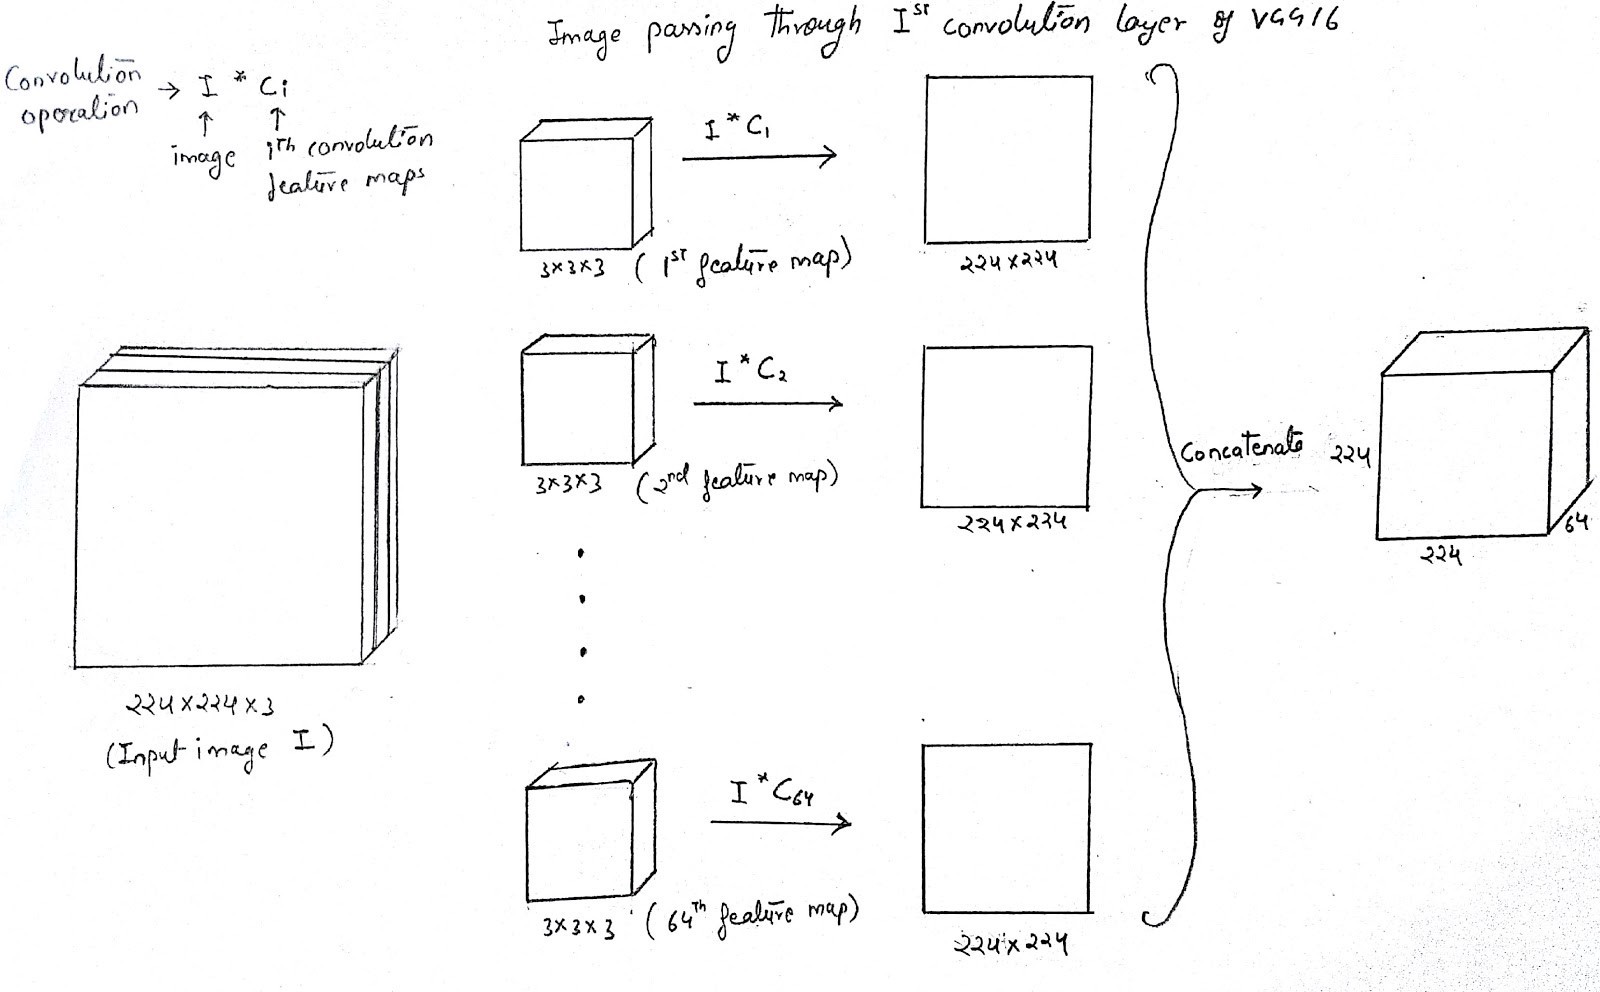 Image passing through Ist convolution layer of VGG16
Convolution
operation → I * Ci
image ith convolution
feature maps
I * C1
3×3×3 (1st feature map)
224×224
I * C2
3×3×3 (2nd feature map)
224×224
Concatenate
224
224
64
224×224×3
(Input image I)
I * C64
3×3×3 (64th feature map)
224×224